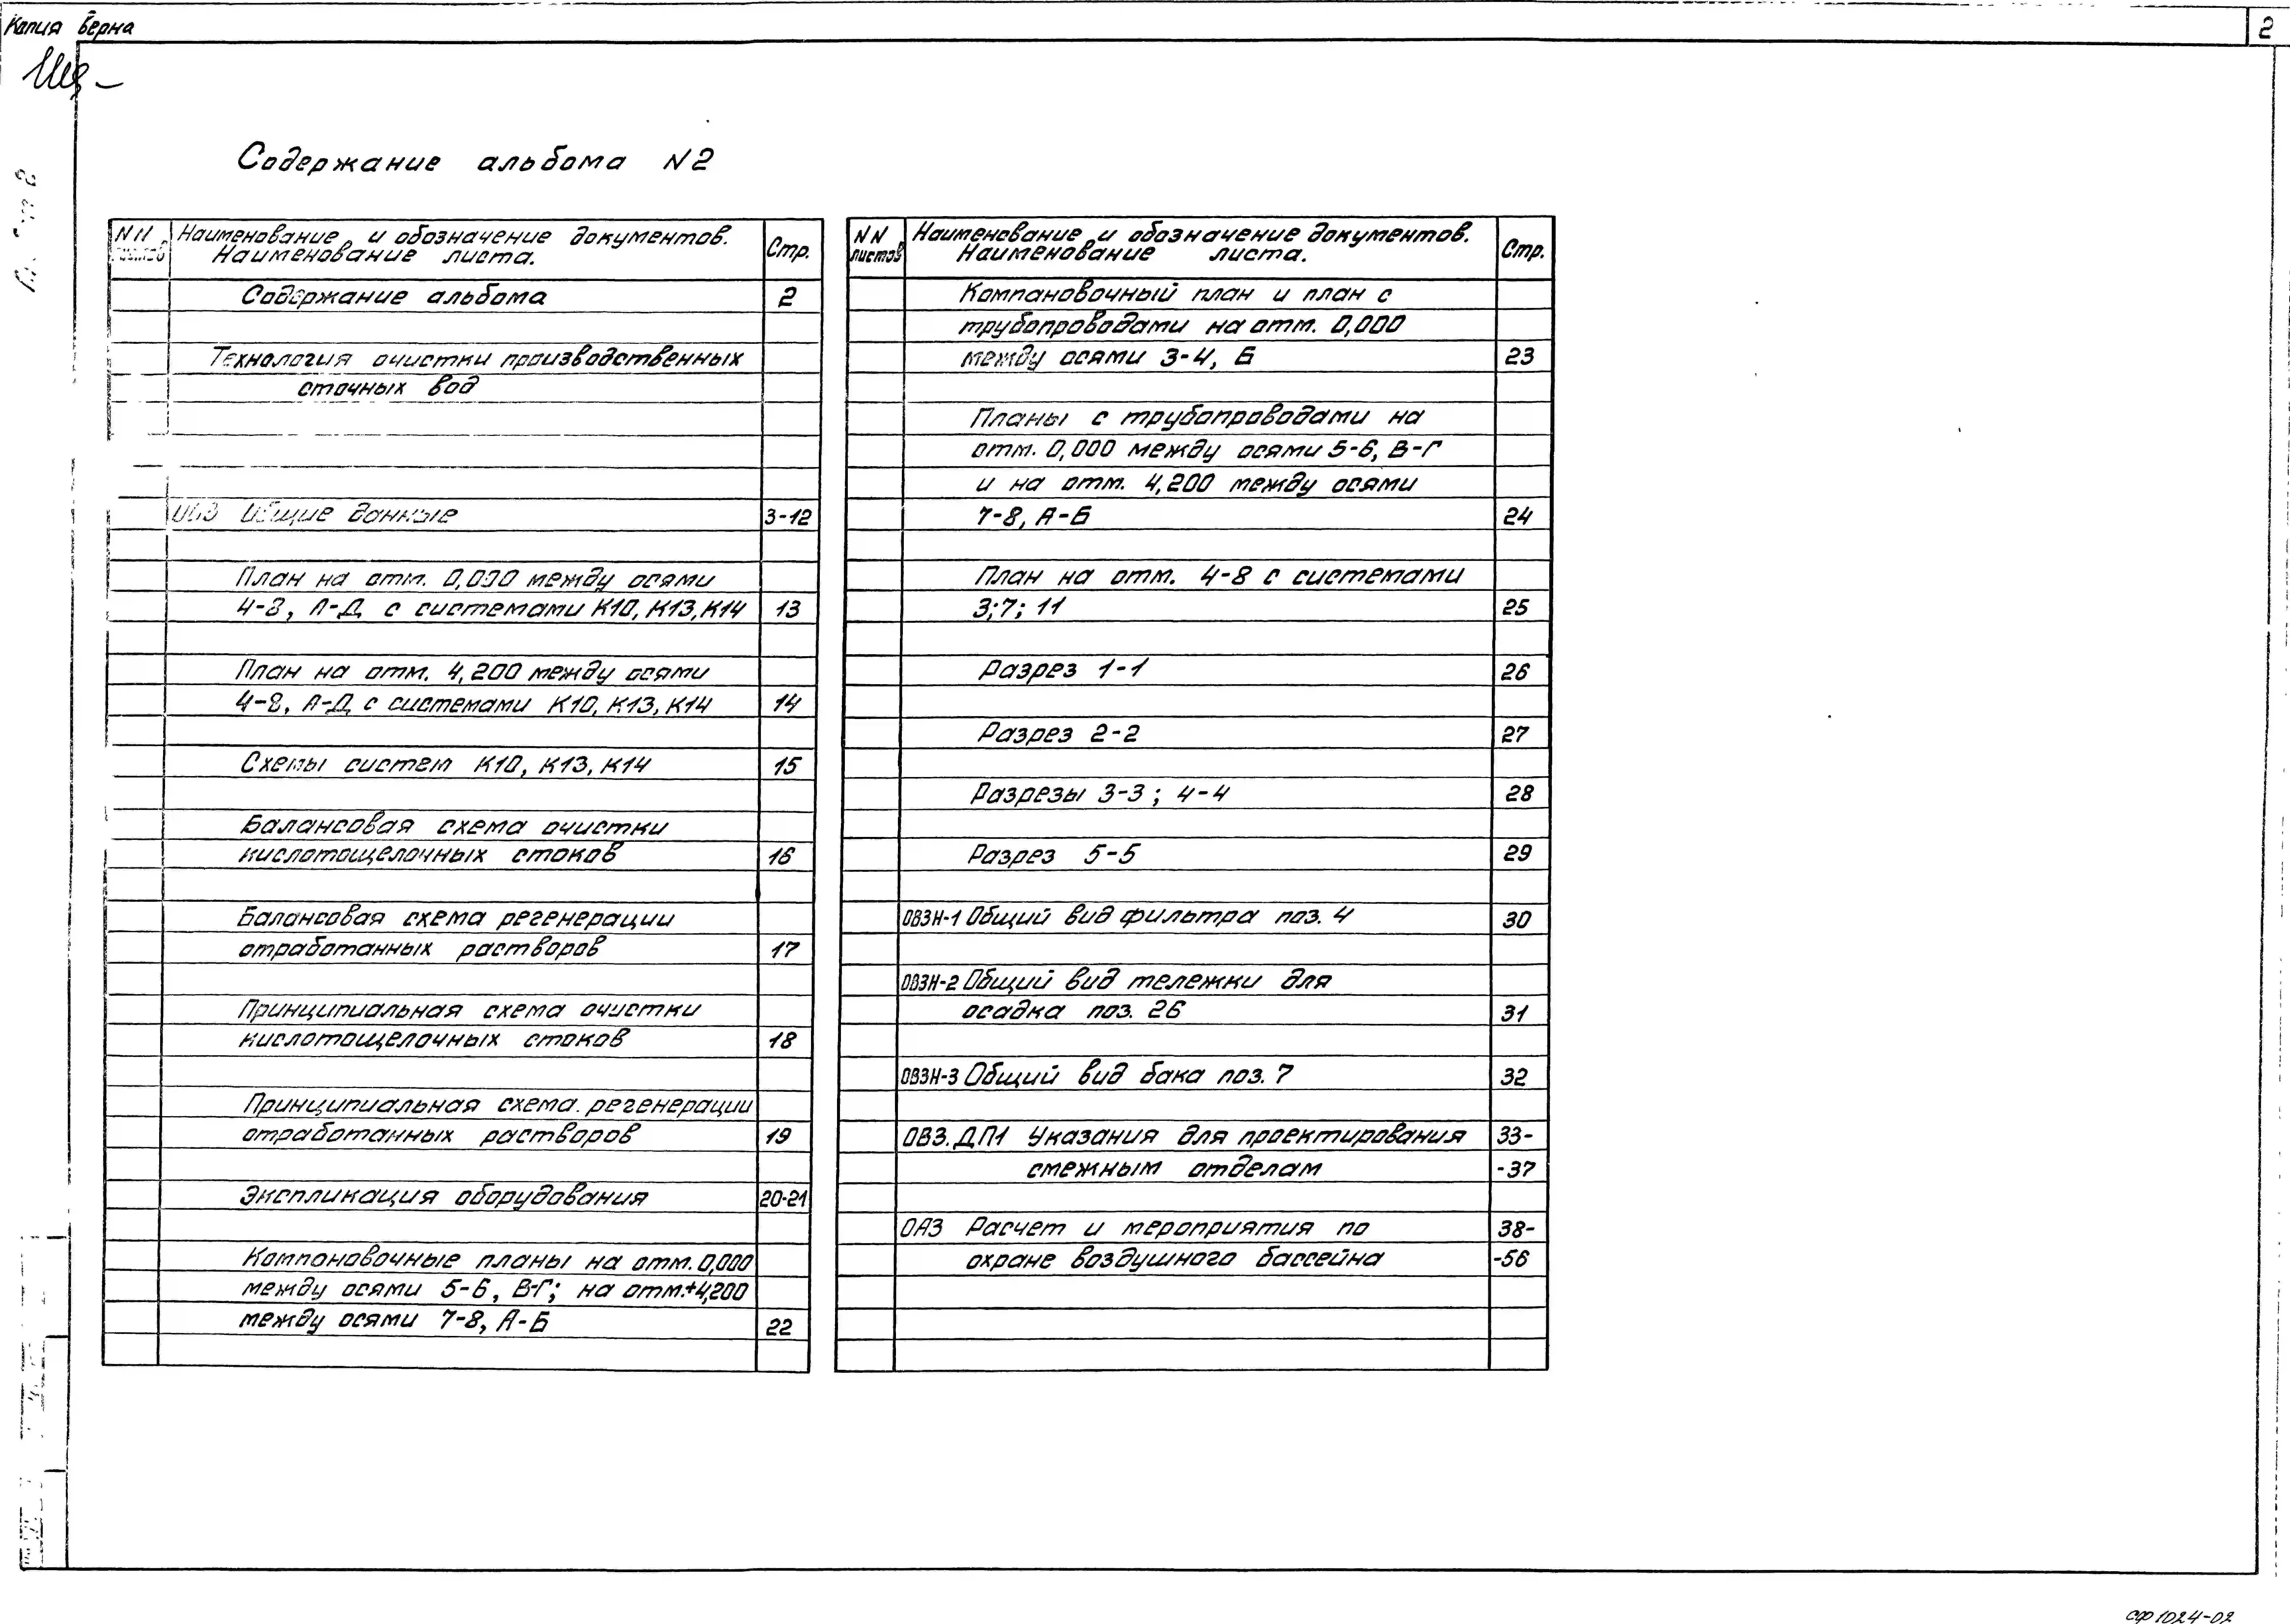 Копия верна
2
Содержание альбома N2
NN Наименование и обозначение документов. Стр.
листов Наименование листа.
Содержание альбома 2
Технология очистки производственных
сточных вод
ОВЗ Общие данные 3-12
План на отм. 0,000 между осями
4-8, А-Д с системами К10, К13, К14 13
План на отм. 4,200 между осями
4-8, А-Д с системами К10, К13, К14 14
Схемы систем К10, К13, К14 15
Балансовая схема очистки
кислотощелочных стоков 16
Балансовая схема регенерации
отработанных растворов 17
Принципиальная схема очистки
кислотощелочных стоков 18
Принципиальная схема регенерации
отработанных растворов 19
Экспликация оборудования 20-21
Компоновочные планы на отм. 0,000
между осями 5-6, В-Г; на отм.+4,200
между осями 7-8, А-Б 22
NN Наименование и обозначение документов. Стр.
листов Наименование листа.
Компановочный план и план с
трубопроводами на отм. 0,000
между осями 3-4, Б 23
Планы с трубопроводами на
отм. 0,000 между осями 5-6, В-Г
и на отм. 4,200 между осями
7-8, А-Б 24
План на отм. 4-8 с системами
3; 7; 11 25
Разрез 1-1 26
Разрез 2-2 27
Разрезы 3-3; 4-4 28
Разрез 5-5 29
ОВЗН-1 Общий вид фильтра поз. 4 30
ОВЗН-2 Общий вид тележки для
осадка поз. 26 31
ОВЗН-3 Общий вид бака поз. 7 32
ОВЗ.ДП1 Указания для проектирования 33-
смежным отделам -37
ОАЗ Расчет и мероприятия по 38-
охране воздушного бассейна -56
СФ 1024-02